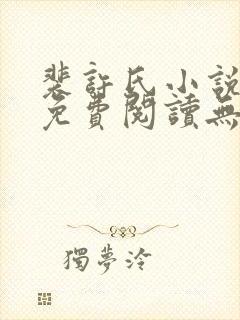 裴許氏小說
免費閱讀無
獨夢泠